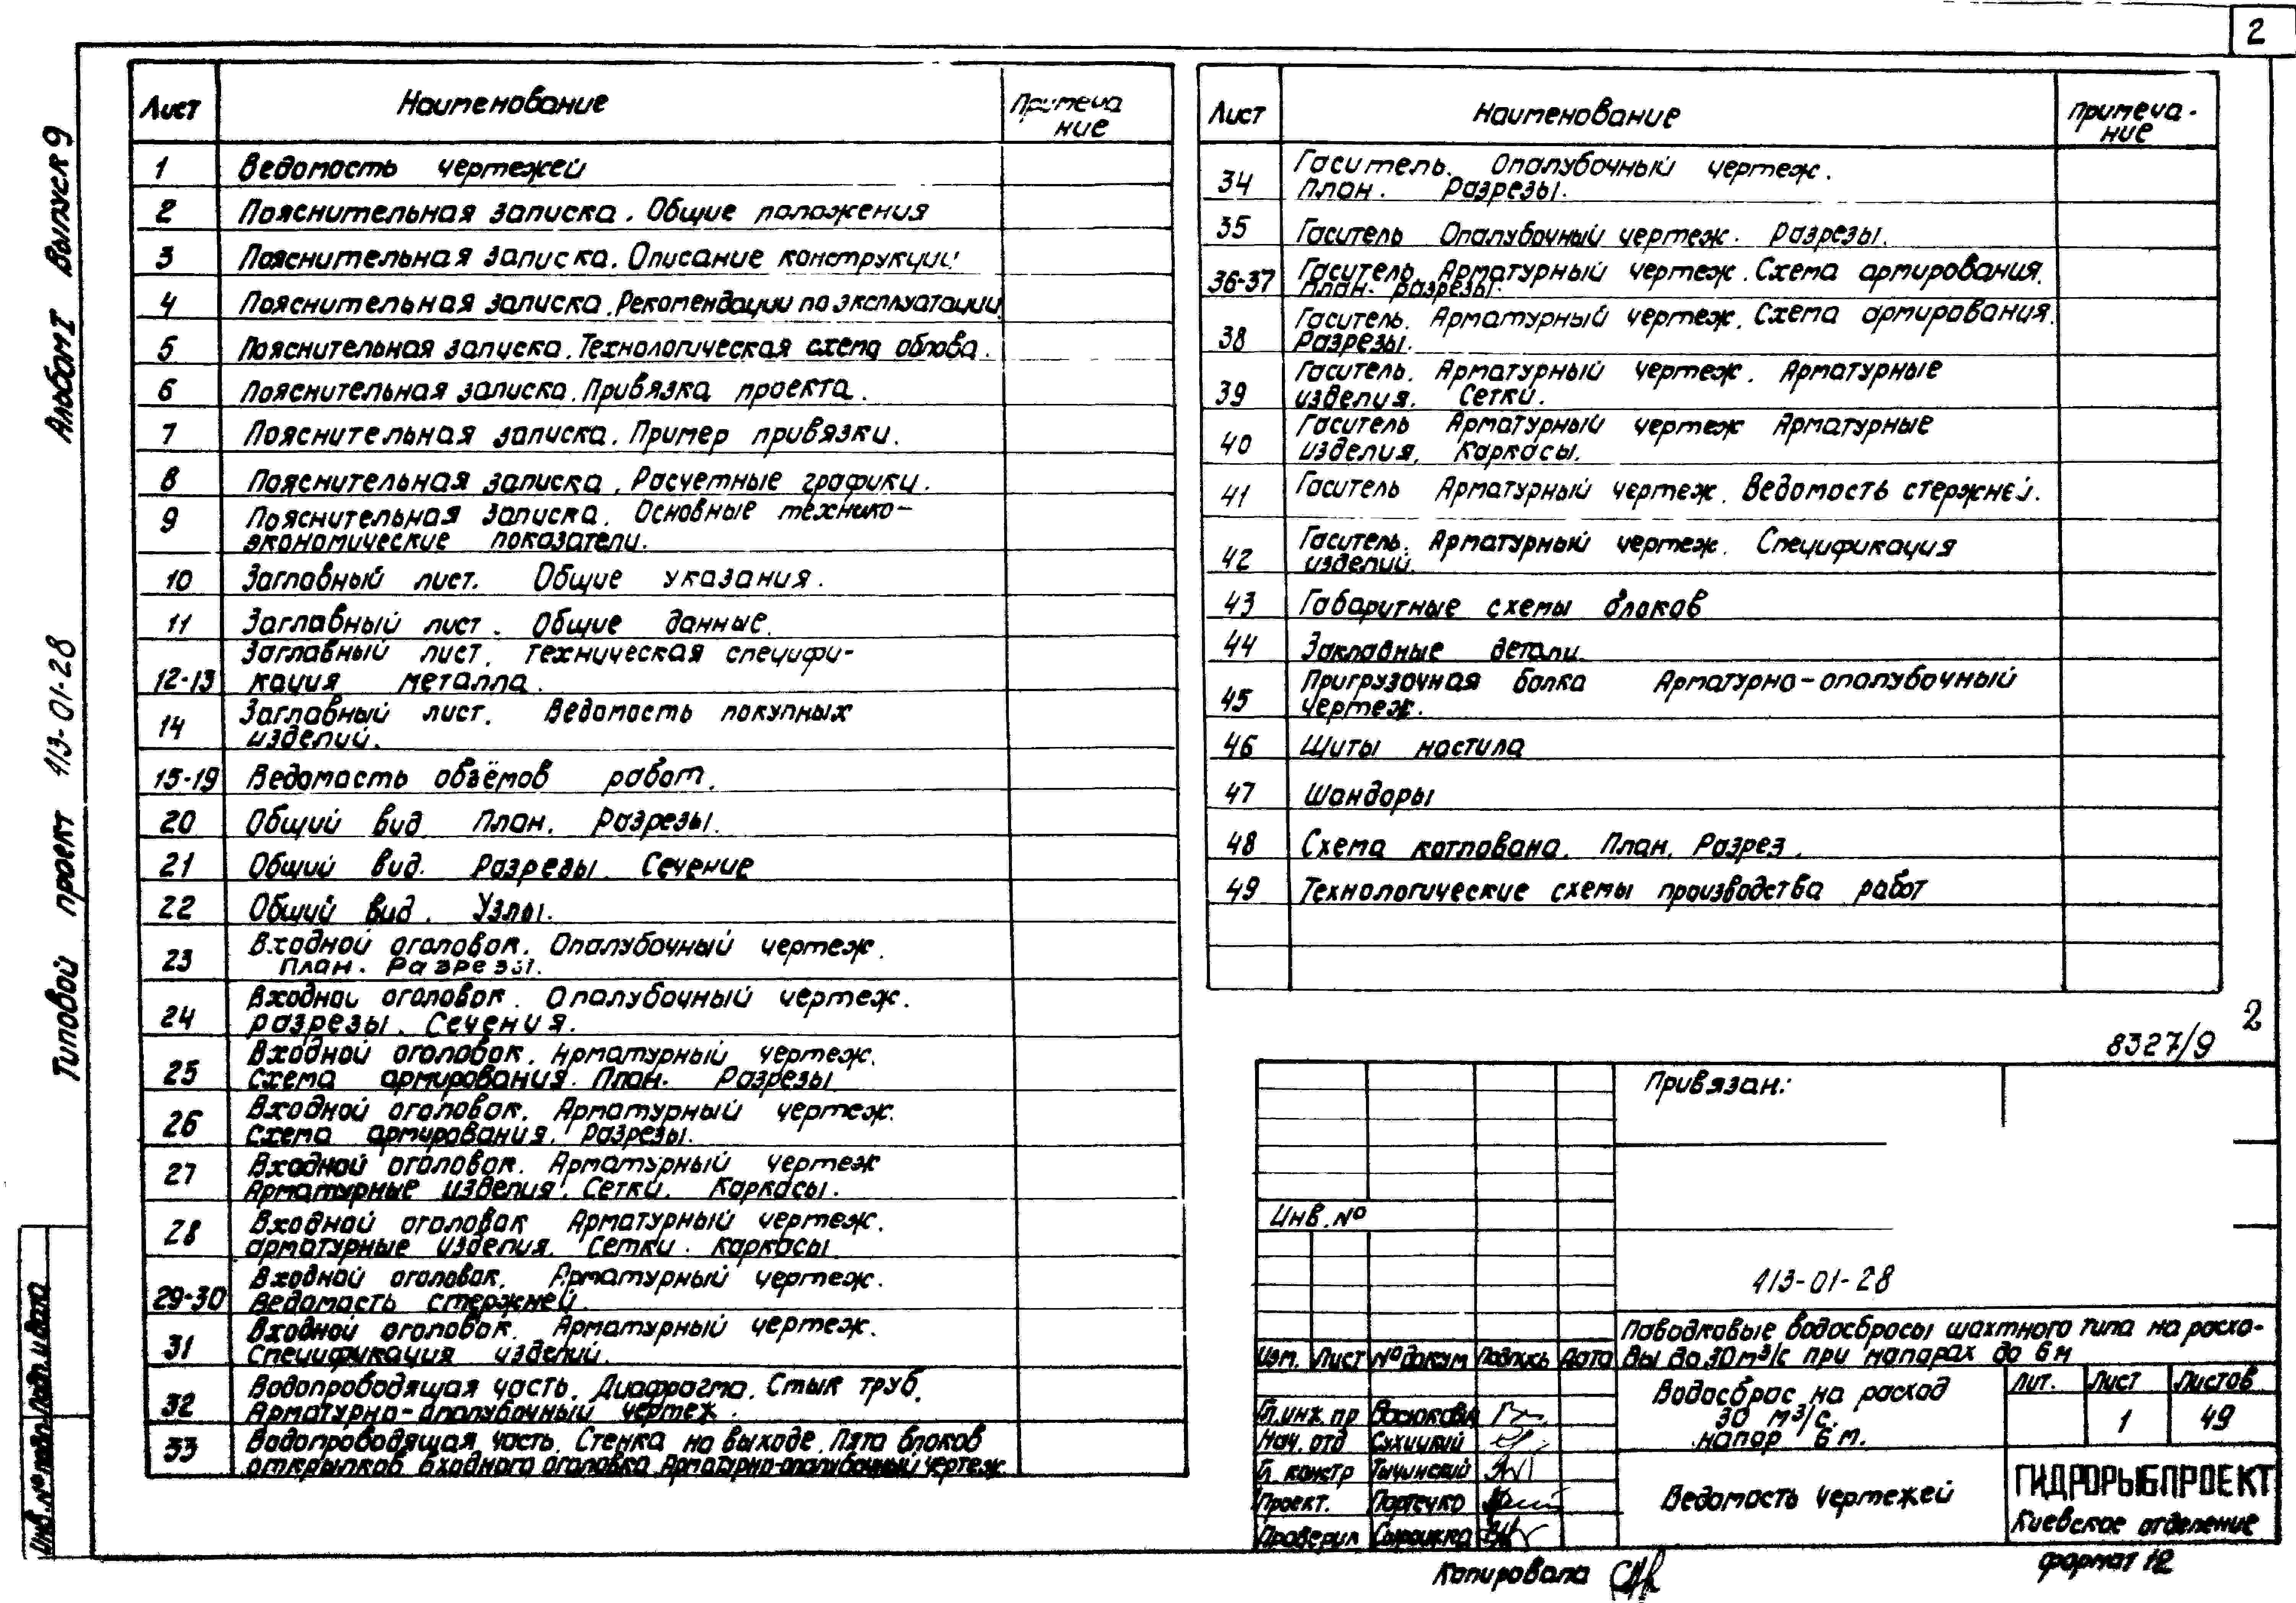 2
Типовой проект 413-01-28 Альбом I Выпуск 9
Лист Наименование Примеча
ние
1 Ведомость чертежей
2 Пояснительная записка. Общие положения
3 Пояснительная записка. Описание конструкции
4 Пояснительная записка. Рекомендации по эксплуатации
5 Пояснительная записка. Технологическая схема облова.
6 Пояснительная записка. Привязка проекта.
7 Пояснительная записка. Пример привязки.
8 Пояснительная записка. Расчетные графики.
9 Пояснительная записка. Основные технико-
экономические показатели.
10 Заглавный лист. Общие указания.
11 Заглавный лист. Общие данные.
Заглавный лист. Техническая специфи-
12-13 кация металла.
14 Заглавный лист. Ведомость покупных
изделий.
15-19 Ведомость объёмов работ.
20 Общий вид. План. Разрезы.
21 Общий вид. Разрезы. Сечение
22 Общий вид. Узлы.
23 Входной оголовок. Опалубочный чертеж.
План. Разрезы.
24 Входной оголовок. Опалубочный чертеж.
разрезы. Сечения.
25 Входной оголовок. Арматурный чертеж.
Схема армирования. План. Разрезы
26 Входной оголовок. Арматурный чертеж.
Схема армирования. Разрезы.
27 Входной оголовок. Арматурный чертеж
Арматурные изделия. Сетки. Каркасы.
28 Входной оголовок Арматурный чертеж.
арматурные изделия. Сетки. Каркасы
29-30 Входной оголовок. Арматурный чертеж.
Ведомость стержней.
31 Входной оголовок. Арматурный чертеж.
Спецификация изделий.
32 Водопроводящая часть. Диафрагма. Стык труб.
Арматурно-опалубочный чертеж.
33 Водопроводящая часть. Стенка на выходе. Пята блоков
открылков входного оголовка. Арматурно-опалубочный чертеж.
Лист Наименование Примеча-
ние
34 Гаситель. Опалубочный чертеж.
План. Разрезы.
35 Гаситель Опалубочный чертеж. Разрезы.
36-37 Гаситель. Арматурный чертеж. Схема армирования.
План. разрезы.
38 Гаситель. Арматурный чертеж. Схема армирования.
Разрезы.
39 Гаситель. Арматурный чертеж. Арматурные
изделия. Сетки.
40 Гаситель Арматурный чертеж Арматурные
изделия. Каркасы.
41 Гаситель Арматурный чертеж. Ведомость стержней.
42 Гаситель. Арматурный чертеж. Спецификация
изделий.
43 Габаритные схемы блоков
44 Закладные детали
45 Пригрузочная балка Арматурно-опалубочный
чертеж.
46 Щиты настила
47 Шандоры
48 Схема котлована. План. Разрез.
49 Технологические схемы производства работ
2
8327/9
Привязан:
Инв. №
413-01-28
Паводковые водосбросы шахтного типа на расхо-
ды до 30 м³/с при напорах до 6 м
Изм. Лист № докум Подпись Дата
Водосброс на расход
30 м³/с.
напор 6 м.
Лит. Лист Листов
1 49
Гл. инж. пр
Нач. отд Сухицкий
Гл. констр Тычинский
Проект.
Проверил
Ведомость чертежей
ГИДРОРЫБПРОЕКТ
Киевское отделение
Копировала
формат 12
Инв. № подл. Подп. и дата